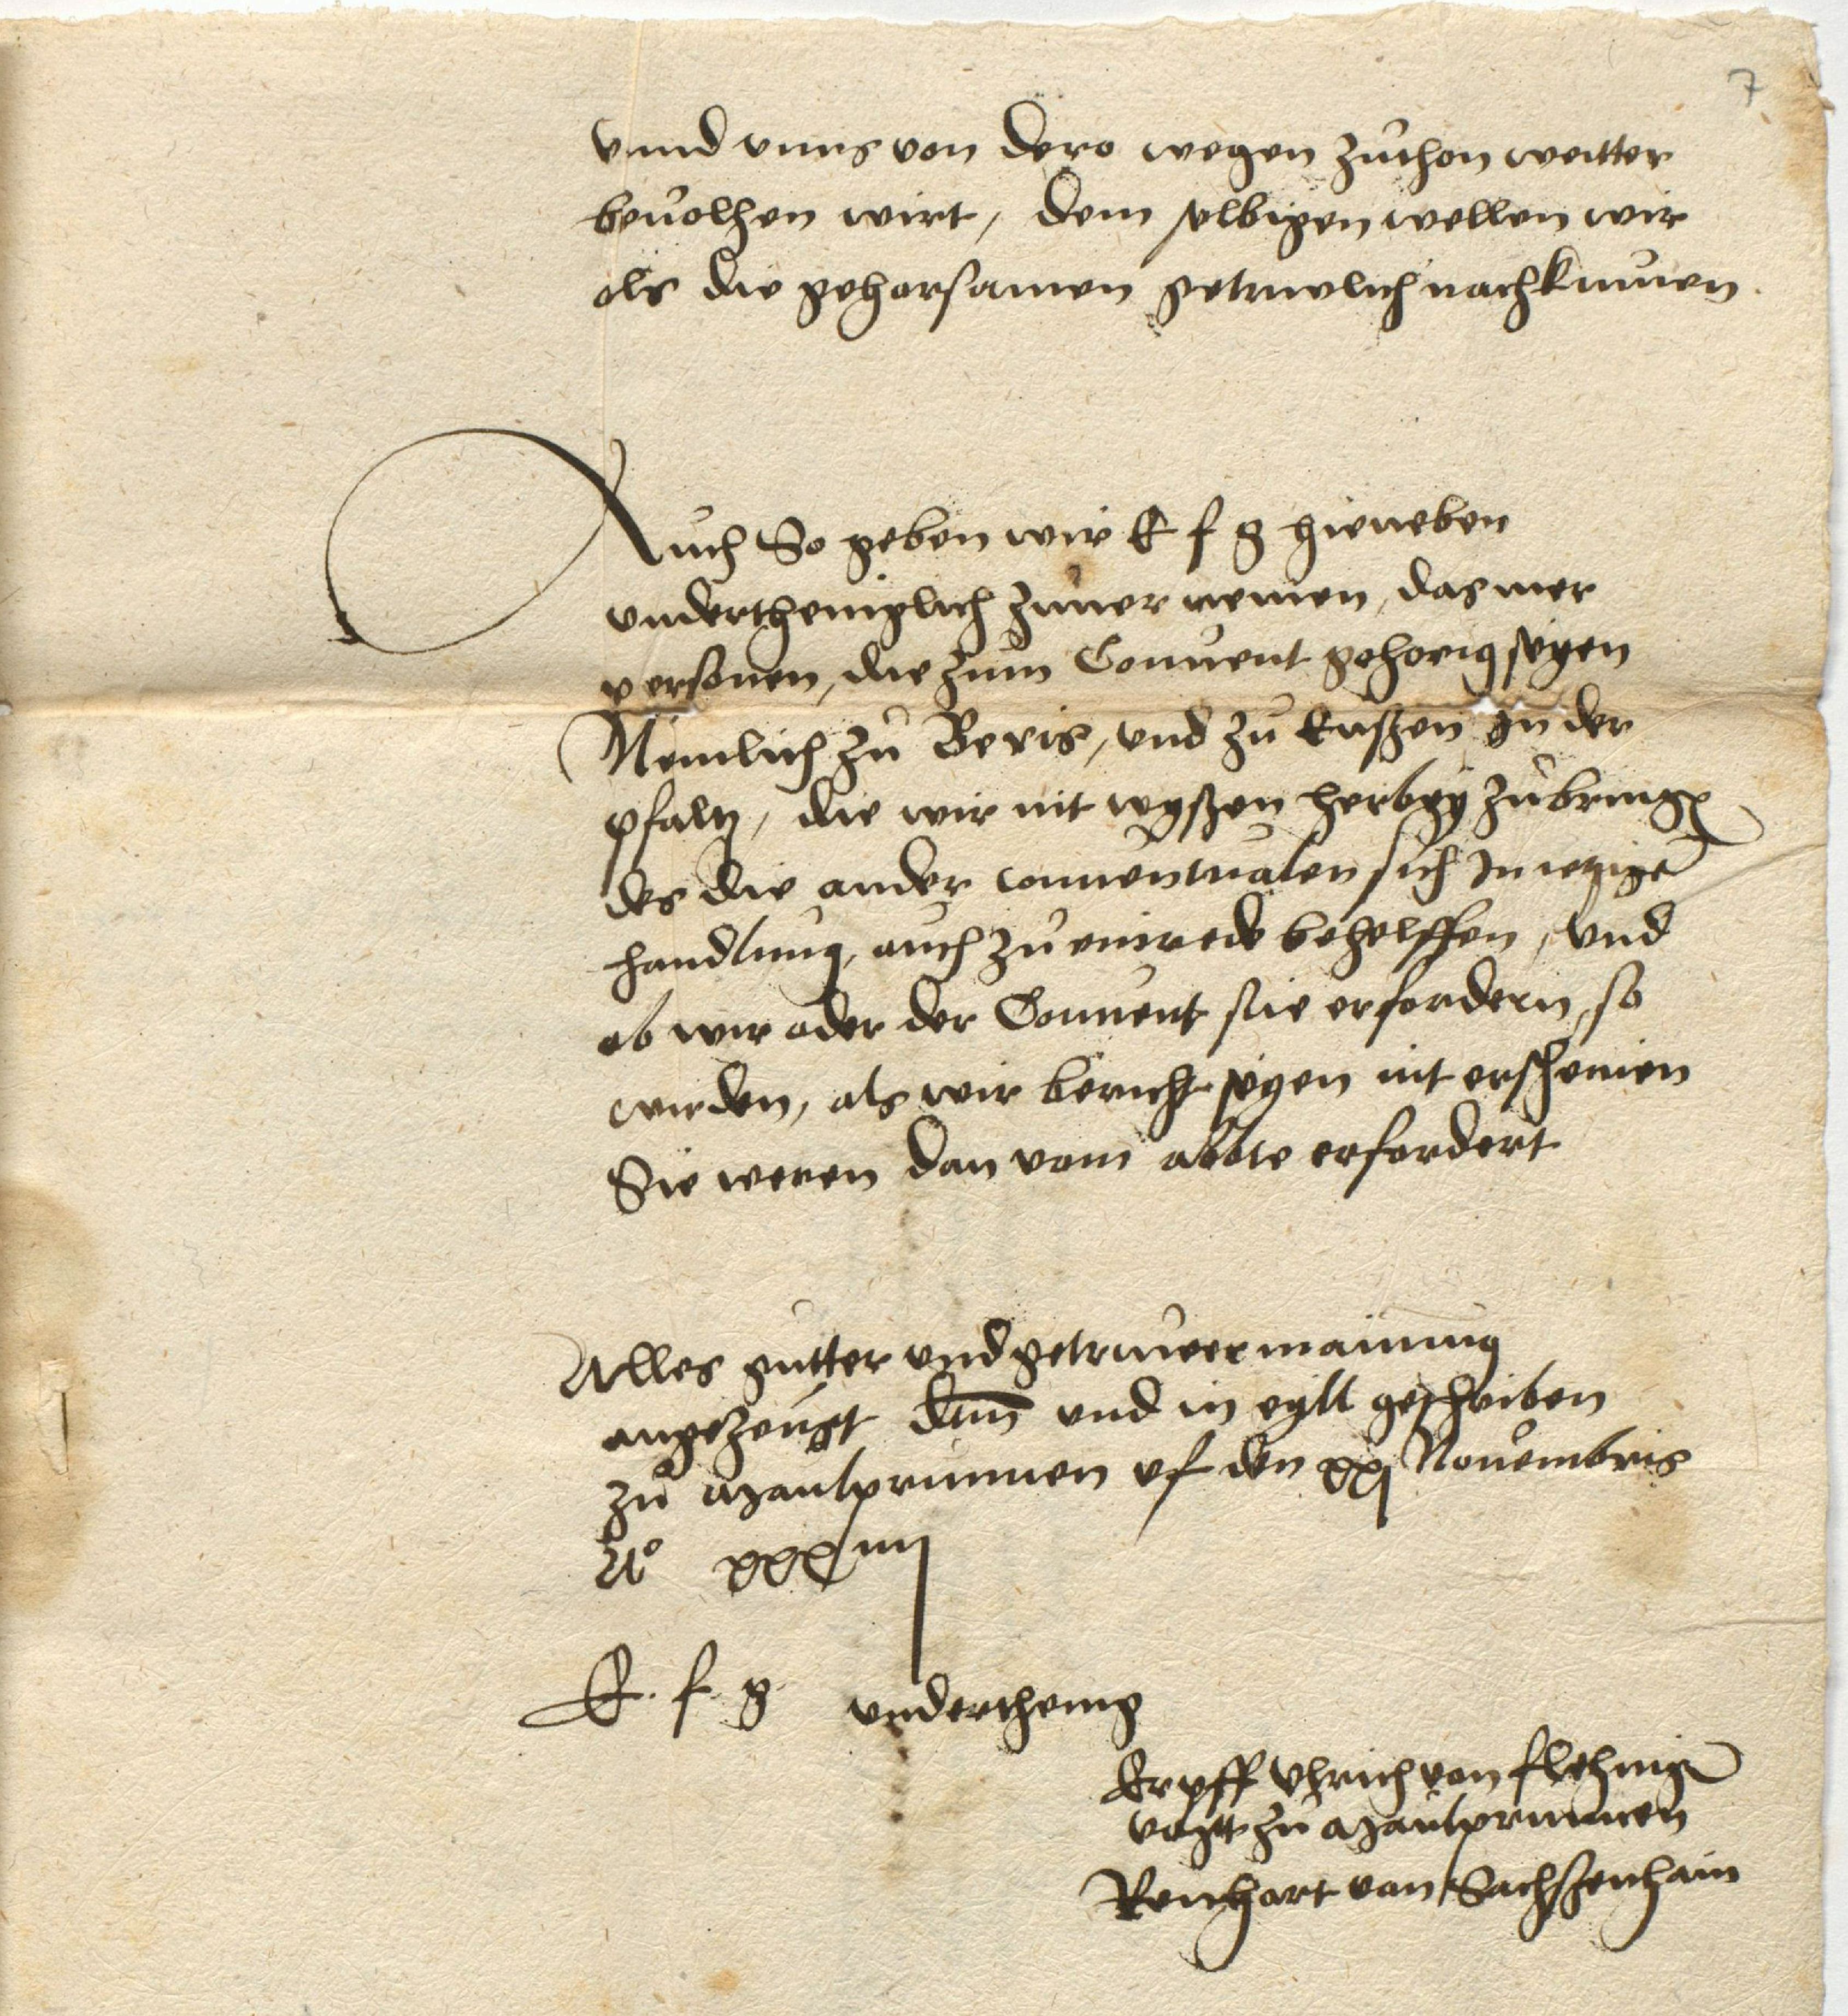 7
vnnd vnns von dero wegen zuthon weitter
beuolhen wirt, dem selbigen wellen wir
als die gehorsamen getruwlich nachkumen
Auch So geben wir E f g hieneben
vndertheniglich zuuernemen, das mer
personen, die zum Conuent gehorig syen
Nemlich zu und zu In der
pfaltz, die wir nit wyssen herbey zubringen
des die ander conuentualen sich In yetziger
handlung, auch zu einrede behelffen, vnd
ob wir oder der Conuent sie erfordern, so
wirden, als wir bericht syen nit erscheinen
Sie weren dan vom abbte erfordert
Alles gutter vnd getruwer mainung
angezeugt Datum vnd in eyll geschriben
zu Maulprunnen vf den xxj Nouembris
Ao xxxiiij
E. f. g. vnderthenig
Erpff Vlrich von flehingen
vogtt zu Maulprunnen
Reinhart von Sachssenhaim